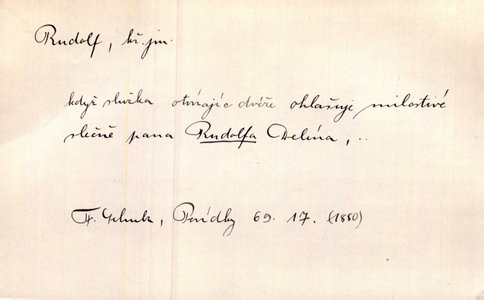 Rudolf, kř. jm.
když služka otvírajíc dvéře ohlašuje milostivé
slečně pana Rudolfa Delína, ..
Povídky 69. 17. (1880)